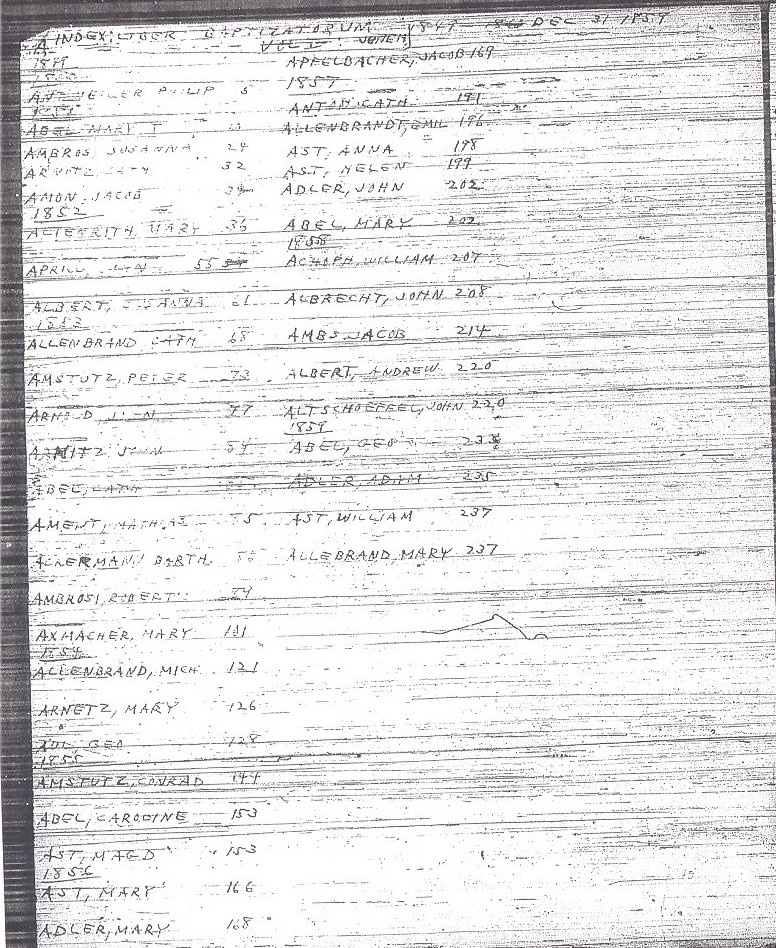 A INDEX: LIBER BAPTIZATORUM 1849 DEC 31 1859
VOL I
1849
PHILIP 5
ABEL, MARY T
AMBROS, SUSANNA 24
ARNETZ, 32
AMON, JACOB
1852
ALTENRITH, MARY 36
APRILL, 55
ALBERT, SUSANNA 61
1853
ALLENBRAND CATH 68
AMSTUTZ, PETER 73
ARNOLD, 77
ARNITZ 84
ABEL, CATH
AMENT, MATHIAS
ALLERMAN, BARTH.
AMBROSI, ROBERT
AXMACHER, MARY 101
1854
ALLENBRAND, MICH 121
ARNETZ, MARY 126
GEO 128
1855
AMSTUTZ, CONRAD 144
ABEL, CAROLINE 153
AST, MAGD 153
1856
AST, MARY 166
ADLER, MARY 168
APFELBACHER, JACOB 169
1857
ANTON, CATH 191
ALLENBRANDT, EMIL 196
AST, ANNA 198
AST, HELEN 199
ADLER, JOHN 202
ABEL, MARY 202
1858
ACHOPH, WILLIAM 207
ALBRECHT, JOHN 208
AMBS, JACOB 214
ALBERT, ANDREW 220
ALTSCHOEFFEL, JOHN 220
1859
ABEL, GEO 233
ADLER, ADAM 235
AST, WILLIAM 237
ALLEBRAND, MARY 237